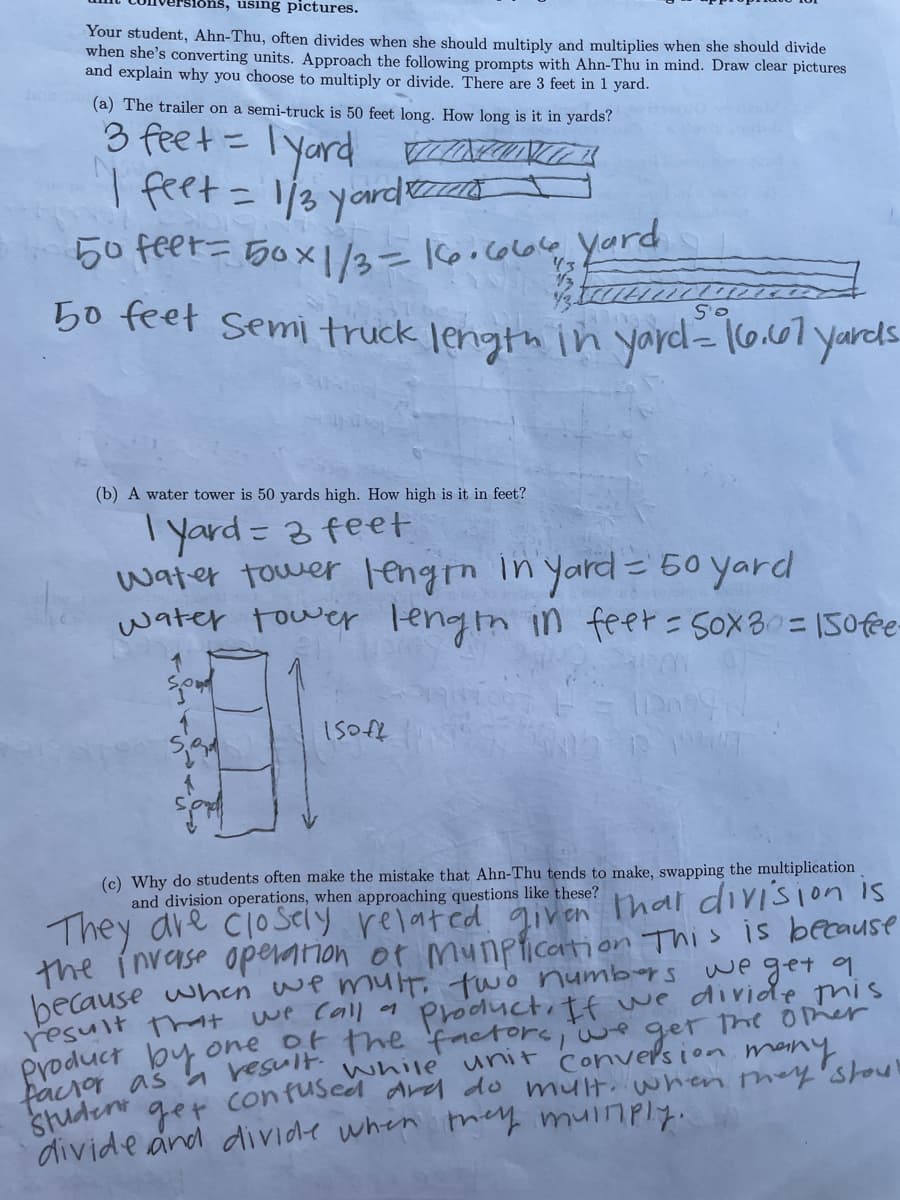 conversions, using pictures.
Your student, Ahn-Thu, often divides when she should multiply and multiplies when she should divide
when she's converting units. Approach the following prompts with Ahn-Thu in mind. Draw clear pictures
and explain why you choose to multiply or divide. There are 3 feet in 1 yard.
(a) The trailer on a semi-truck is 50 feet long. How long is it in yards?
3 feet = 1 yard
1 feet = 1/3 yard
50 feet = 50 x 1/3 = 16.666 yard
1/3
1/3
1/3
50
50 feet Semi truck length in yard = 16.67 yards
(b) A water tower is 50 yards high. How high is it in feet?
1 yard = 3 feet
water tower length in yard = 50 yard
water tower length in feet = 50x3 = 150 fee
150ft
(c) Why do students often make the mistake that Ahn-Thu tends to make, swapping the multiplication
and division operations, when approaching questions like these?
They are closely related given that division is
the inverse operation of multiplication This is because
because when we mult. two numbers we get a
result that we call a product. If we divide this
product by one of the factors, we get the other
factor as a result. while unit conversion many
student get confused and do mult. when they shoul
divide and divide when they multiply.